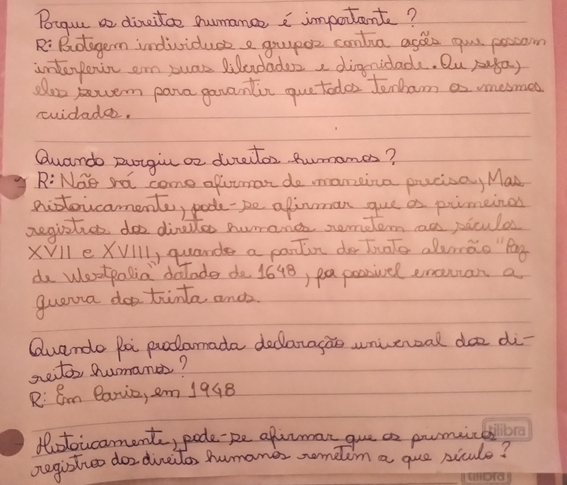 Porque os direitos humanos é importante?
R: Protegem individuos e grupos contra ações que possam
interferir em suas liberdades e dignidade. Ou seja,
eles servem para garantir que todos tenham os mesmos
cuidados.
Quando surgiu os direitos humanos?
R: Não há como afirmar de maneira precisa, Mas
historicamente, pode-se afirmar que os primeiros
registros dos direitos humanos remetem aos séculos
XVII e XVIII, quando a partir do Trato alemão "Paz
de Westfalia" datado de 1648, foi possivel encerrar a
guerra dos trinta anos.
Quando foi proclamada declaração universal dos di-
reitos humanos?
R: Em Paris, em 1948
Historicamente, pode-se afirmar que os primeiros
registros dos direitos humanos remetem a que século?
tilibra
tilibra